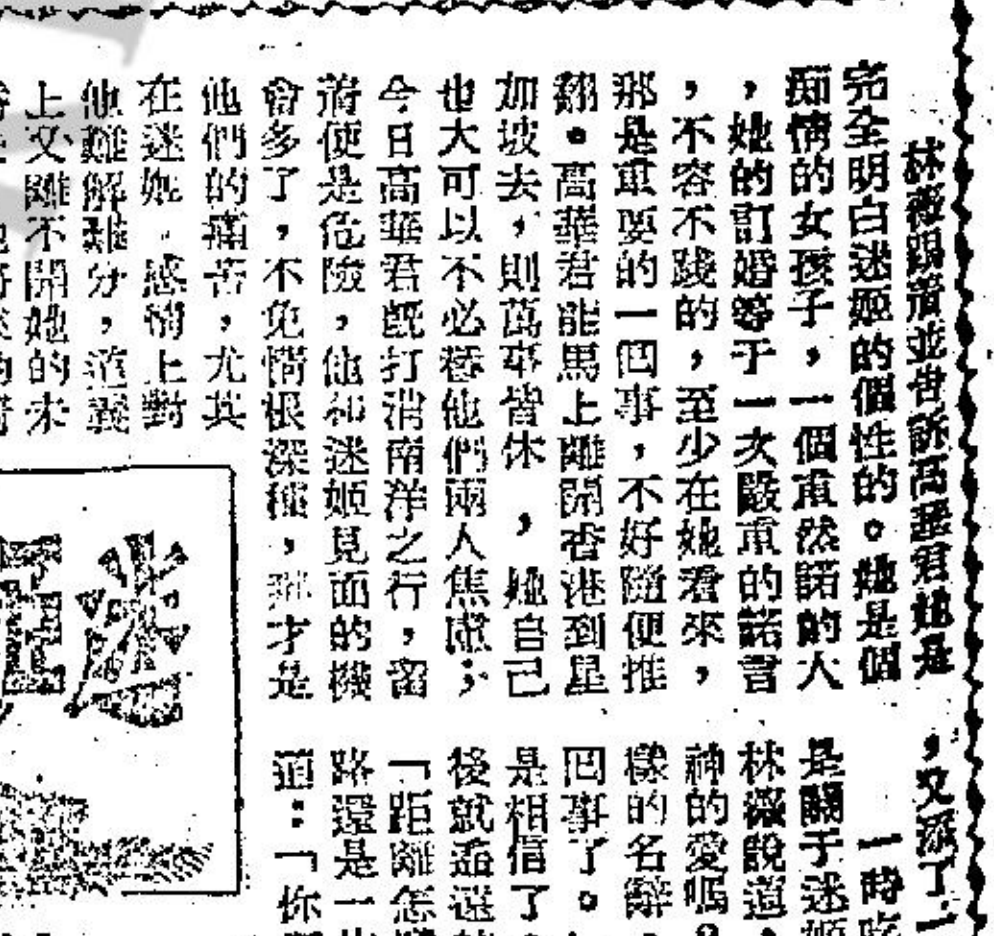 林薇跟着並告訴高華君她是
完全明白迷姬的個性的。她是個
痴情的女孩子，一個重然諾的人
，她的訂婚等于一次嚴重的諾言
，不容不踐的，至少在她看來，
那是重要的一囘事，不好隨便推
翻。高華君能馬上離開香港到星
加坡去，則萬事皆休，她自己
也大可以不必替他們兩人焦慮；
今日高華君既打消南洋之行，留
着便是危險，他和迷姬見面的機
會多了，不免情根深種，那才是
他們的痛苦，尤其
在迷姬，感情上對
他難解難分，道義
上又離不開她的未
迷
，又添了一
一時吃
是關于迷姬
林薇說道，
神的愛嗎？
樣的名辭，
囘事了。
是相信了
後就遙遠
「距離怎樣
路還是一
道：「你